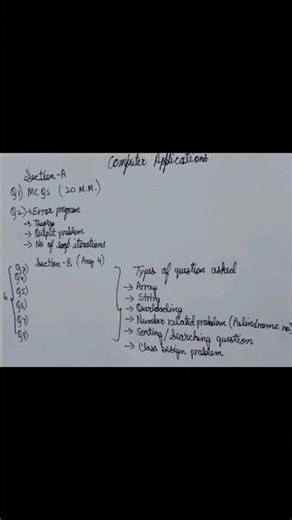 Computer Applications
Section-A
Q1) MCQs (20 M.M.)
Q2) → Error program
→ Theory
→ Output problem
→ No of loop iterations
Section-B (Any 4)
6
Q3
Q4
Q5
Q6
Q7
Q8
Types of question asked
→ Array
→ String
→ Overloading
→ Number Related problem (Palindrome no)
→ Sorting/Searching question
→ Class Design problem